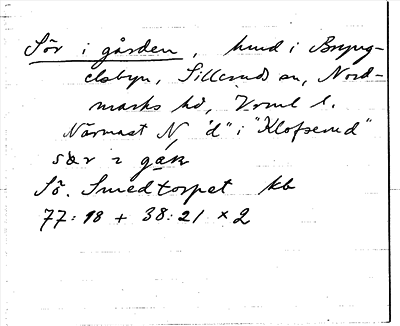 Sör i gården, hmd i Bryng-
elsbyn, Sillerud sn, Nord-
marks hd, Vrml l.
Närmast N "d" i "Klofserud"
sär 2 gäk
Sö. Smedtorpet kb
77:18 + 38:21 × 2